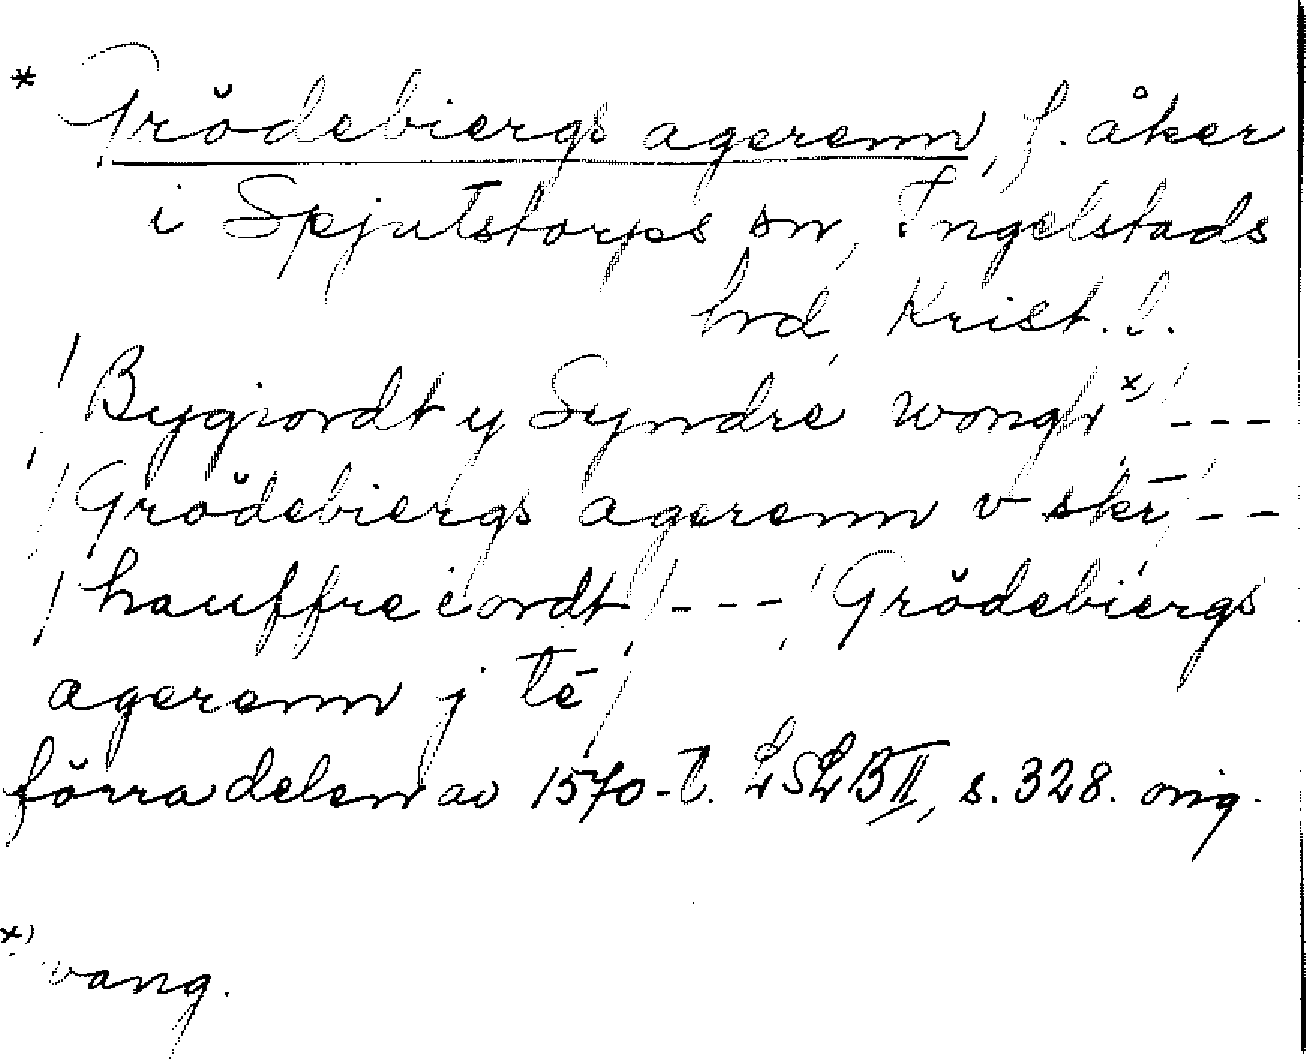 * Grödebiergs agerenn, f. åker
i Spjutstorps sn, Ingelstads
hrd, Krist. l.
/ Bygiordt y Syndre wongh x) / ---
/ Grödebiergs agerenn v skē / --
/ hauffre iordt / --- / Grödebiergs
agerenn j tē /
förra delen av 1570-t. LSLB II, s. 328. orig.
x) vang.